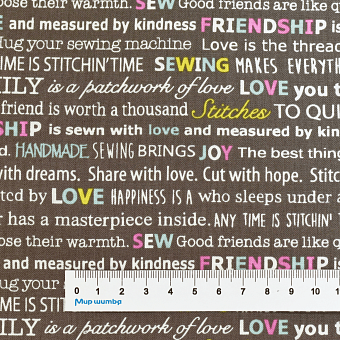 ose their warmth. SEW Good friends are like q
E and measured by kindness FRIENDSHIP is
Hug your sewing machine Love is the thread
TIME IS STITCHIN' TIME SEWING MAKES EVERYTH
ILY is a patchwork of love LOVE you t
friend is worth a thousand Stitches TO QUI
SHIP is sewn with love and measured by kin
d. HANDMADE SEWING BRINGS JOY The best thing
with dreams. Share with love. Cut with hope. Stitc
ted by LOVE HAPPINESS IS A who sleeps under a
r has a masterpiece inside. ANY TIME IS STITCHIN' T
ose their warmth. SEW Good friends are like q
E and measured by kindness FRIENDSHIP is
ug your s
TIME IS ST
0 1 2 3 4 5 6 7 8 9 10 11
Мир штамба
ILY is a patchwork of love LOVE you t